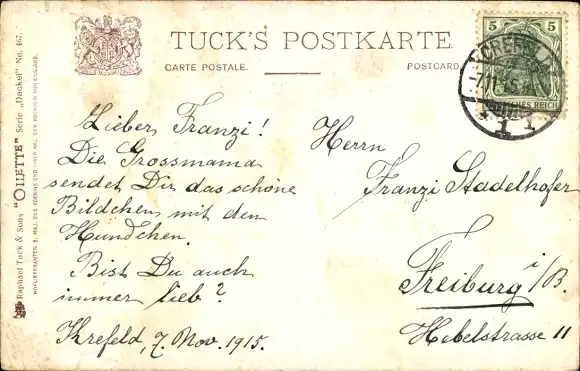 TUCK'S POSTKARTE
CARTE POSTALE.
POSTCARD.
Raphael Tuck & Sons "OILETTE" Serie „Dackel" No. 467.
HOFLIEFERANTEN S. MAJ. DES KÖNIGS UND IHRER MAJ. DER KÖNIGIN VON ENGLAND.
5 5
DEUTSCHES REICH
CREFELD
7.11.15
1 1
Lieber Franzi!
Die Grossmama
sendet Dir das schöne
Bildchen mit den
Hundchen.
Bist Du auch
immer lieb?
Krefeld, 7. Nov. 1915.
Herrn
Franzi Stadelhofer
Freiburg i/B.
Hebelstrasse 11